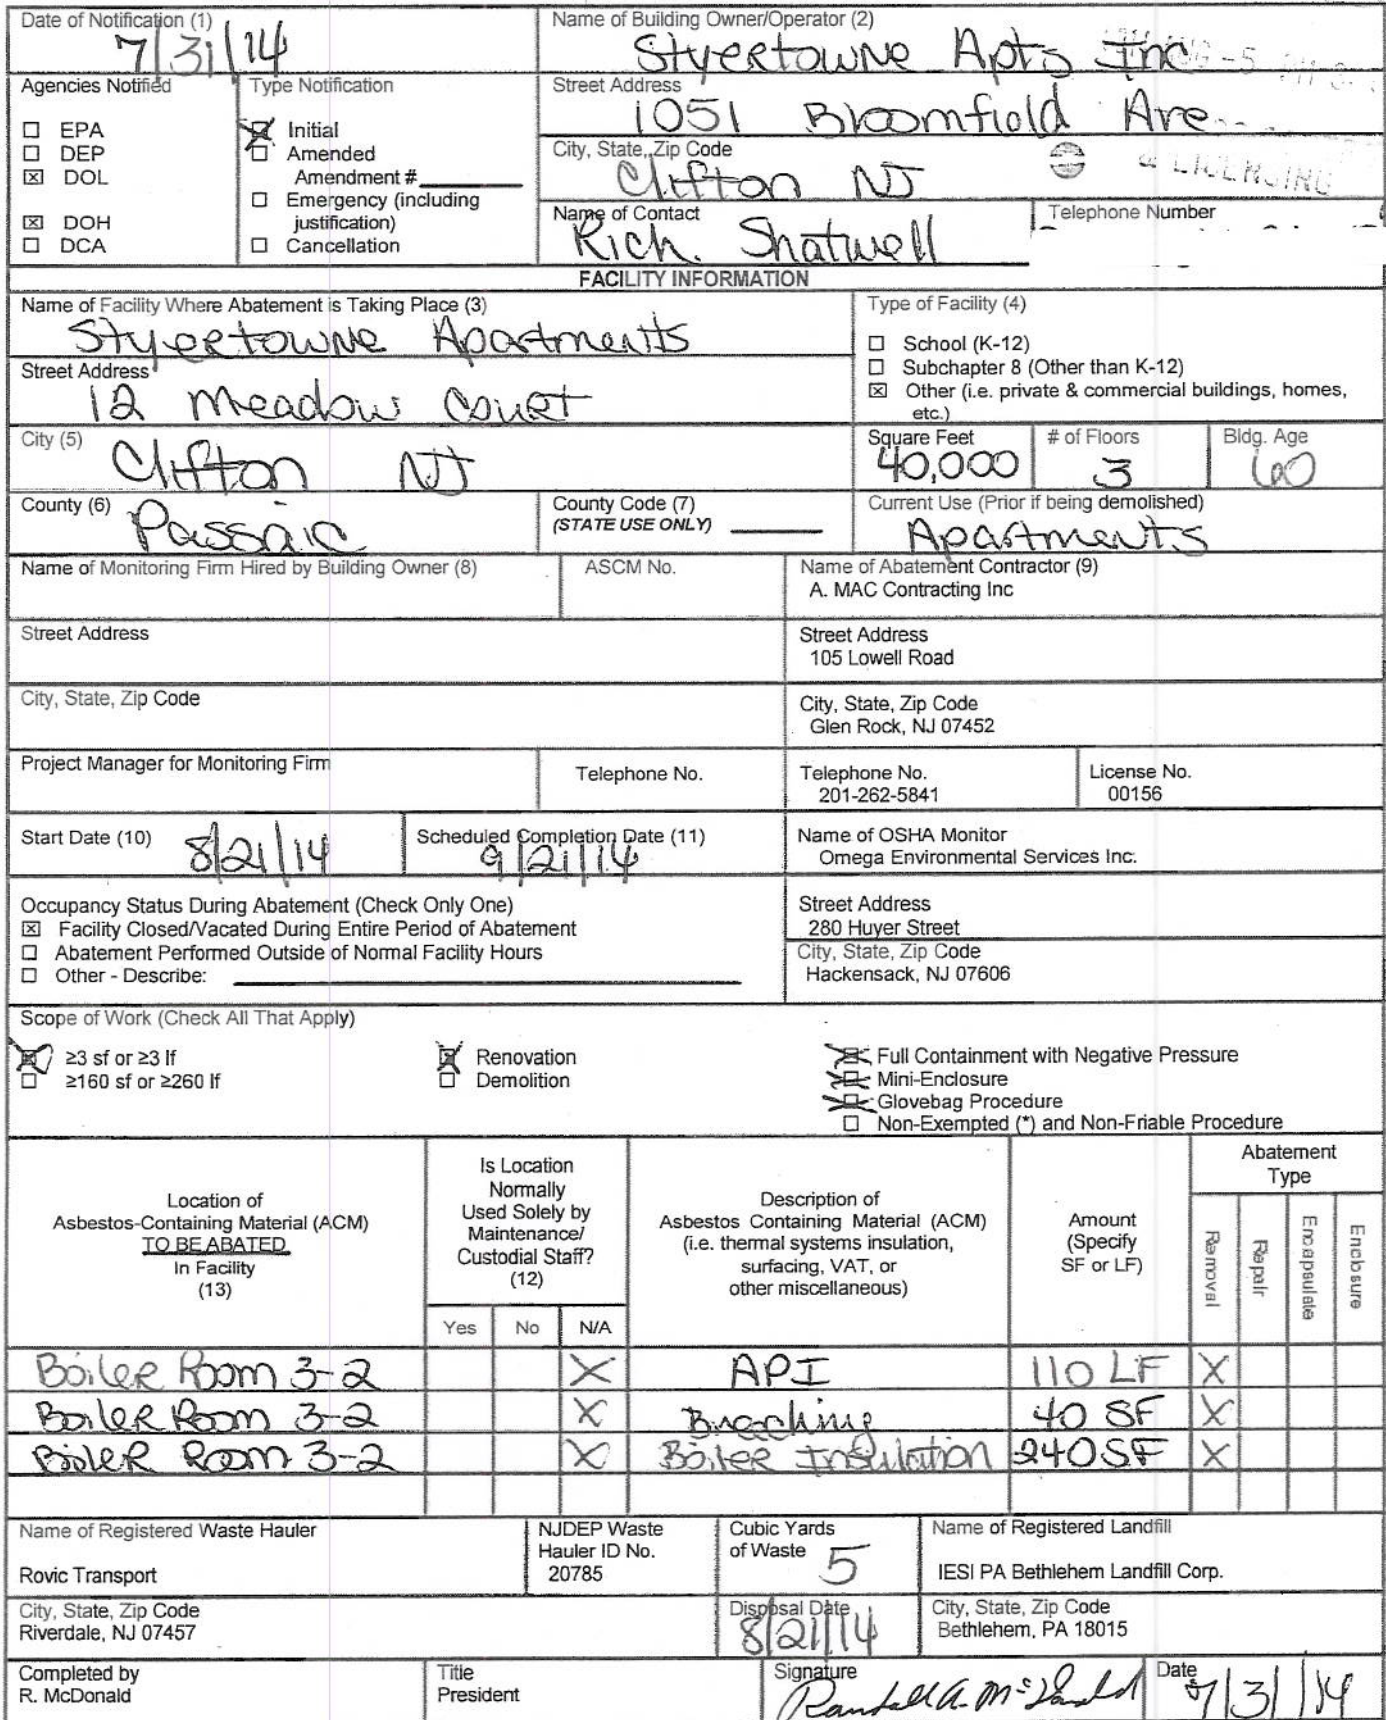 Date of Notification (1)
7/31/14
Name of Building Owner/Operator (2)
Styertowne Apts Inc
Agencies Notified
☐ EPA
☐ DEP
☒ DOL
☒ DOH
☐ DCA
Type Notification
☒ Initial
☐ Amended
Amendment #
☐ Emergency (including
justification)
☐ Cancellation
Street Address
1051 Bloomfield Ave
City, State, Zip Code
Clifton NJ
& LICENSING
Name of Contact
Rich Shatwell
Telephone Number
FACILITY INFORMATION
Name of Facility Where Abatement is Taking Place (3)
Styertowne Apartments
Type of Facility (4)
☐ School (K-12)
☐ Subchapter 8 (Other than K-12)
☒ Other (i.e. private & commercial buildings, homes,
etc.)
Street Address
12 Meadow Court
City (5)
Clifton NJ
Square Feet
40,000
# of Floors
3
Bldg. Age
60
County (6)
Passaic
County Code (7)
(STATE USE ONLY)
Current Use (Prior if being demolished)
Apartments
Name of Monitoring Firm Hired by Building Owner (8)
ASCM No.
Name of Abatement Contractor (9)
A. MAC Contracting Inc
Street Address
Street Address
105 Lowell Road
City, State, Zip Code
City, State, Zip Code
Glen Rock, NJ 07452
Project Manager for Monitoring Firm
Telephone No.
Telephone No.
201-262-5841
License No.
00156
Start Date (10)
8/21/14
Scheduled Completion Date (11)
9/21/14
Name of OSHA Monitor
Omega Environmental Services Inc.
Occupancy Status During Abatement (Check Only One)
☒ Facility Closed/Vacated During Entire Period of Abatement
☐ Abatement Performed Outside of Normal Facility Hours
☐ Other - Describe:
Street Address
280 Huyer Street
City, State, Zip Code
Hackensack, NJ 07606
Scope of Work (Check All That Apply)
☒ ≥3 sf or ≥3 lf
☐ ≥160 sf or ≥260 lf
☒ Renovation
☐ Demolition
☒ Full Containment with Negative Pressure
☒ Mini-Enclosure
☒ Glovebag Procedure
☐ Non-Exempted (*) and Non-Friable Procedure
Location of
Asbestos-Containing Material (ACM)
TO BE ABATED
In Facility
(13)
Is Location
Normally
Used Solely by
Maintenance/
Custodial Staff?
(12)
Yes No N/A
Description of
Asbestos Containing Material (ACM)
(i.e. thermal systems insulation,
surfacing, VAT, or
other miscellaneous)
Amount
(Specify
SF or LF)
Abatement
Type
Removal
Repair
Encapsulate
Enclosure
Boiler Room 3-2 X API 110 LF X
Boiler Room 3-2 X Breaching 40 SF X
Boiler Room 3-2 X Boiler Insulation 240 SF X
Name of Registered Waste Hauler
Rovic Transport
NJDEP Waste
Hauler ID No.
20785
Cubic Yards
of Waste 5
Name of Registered Landfill
IESI PA Bethlehem Landfill Corp.
City, State, Zip Code
Riverdale, NJ 07457
Disposal Date
8/21/14
City, State, Zip Code
Bethlehem, PA 18015
Completed by
R. McDonald
Title
President
Signature
Randall A. McDonald
Date
7/31/14